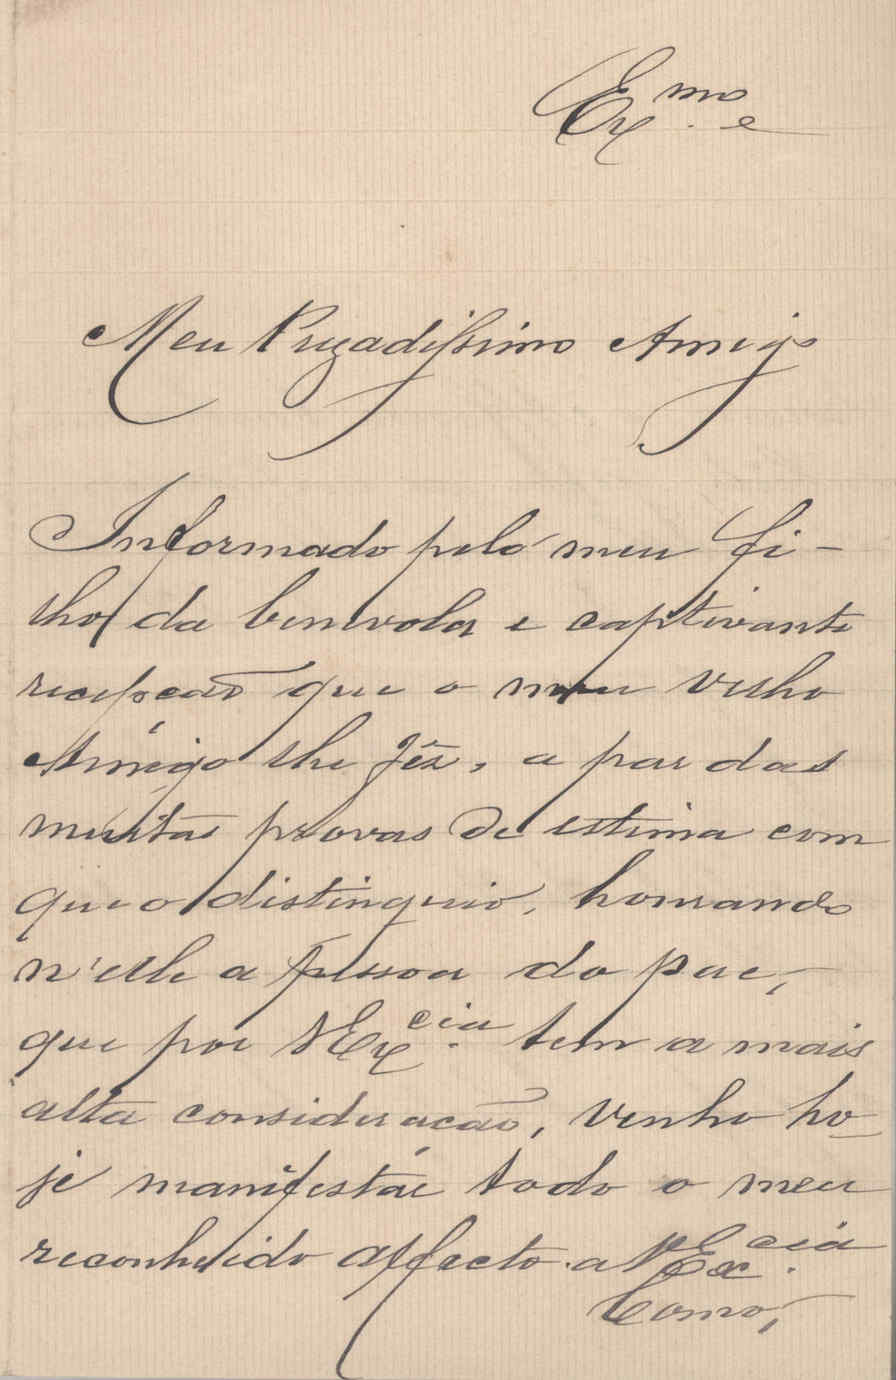 Ex.mo e
Meu Prezadissimo Amigo
Informado pelo meu fi-
lho da benevola e captivante
recepção que o meu velho
Amigo lhe fêz, a par das
muitas provas de estima com
que o distinguio, honrando
n'elle a pessoa do pae,
que por VEx.cia tem a mais
alta consideração, venho ho-
je manifestar todo o meu
reconhecido affecto a VEx.cia
Como,